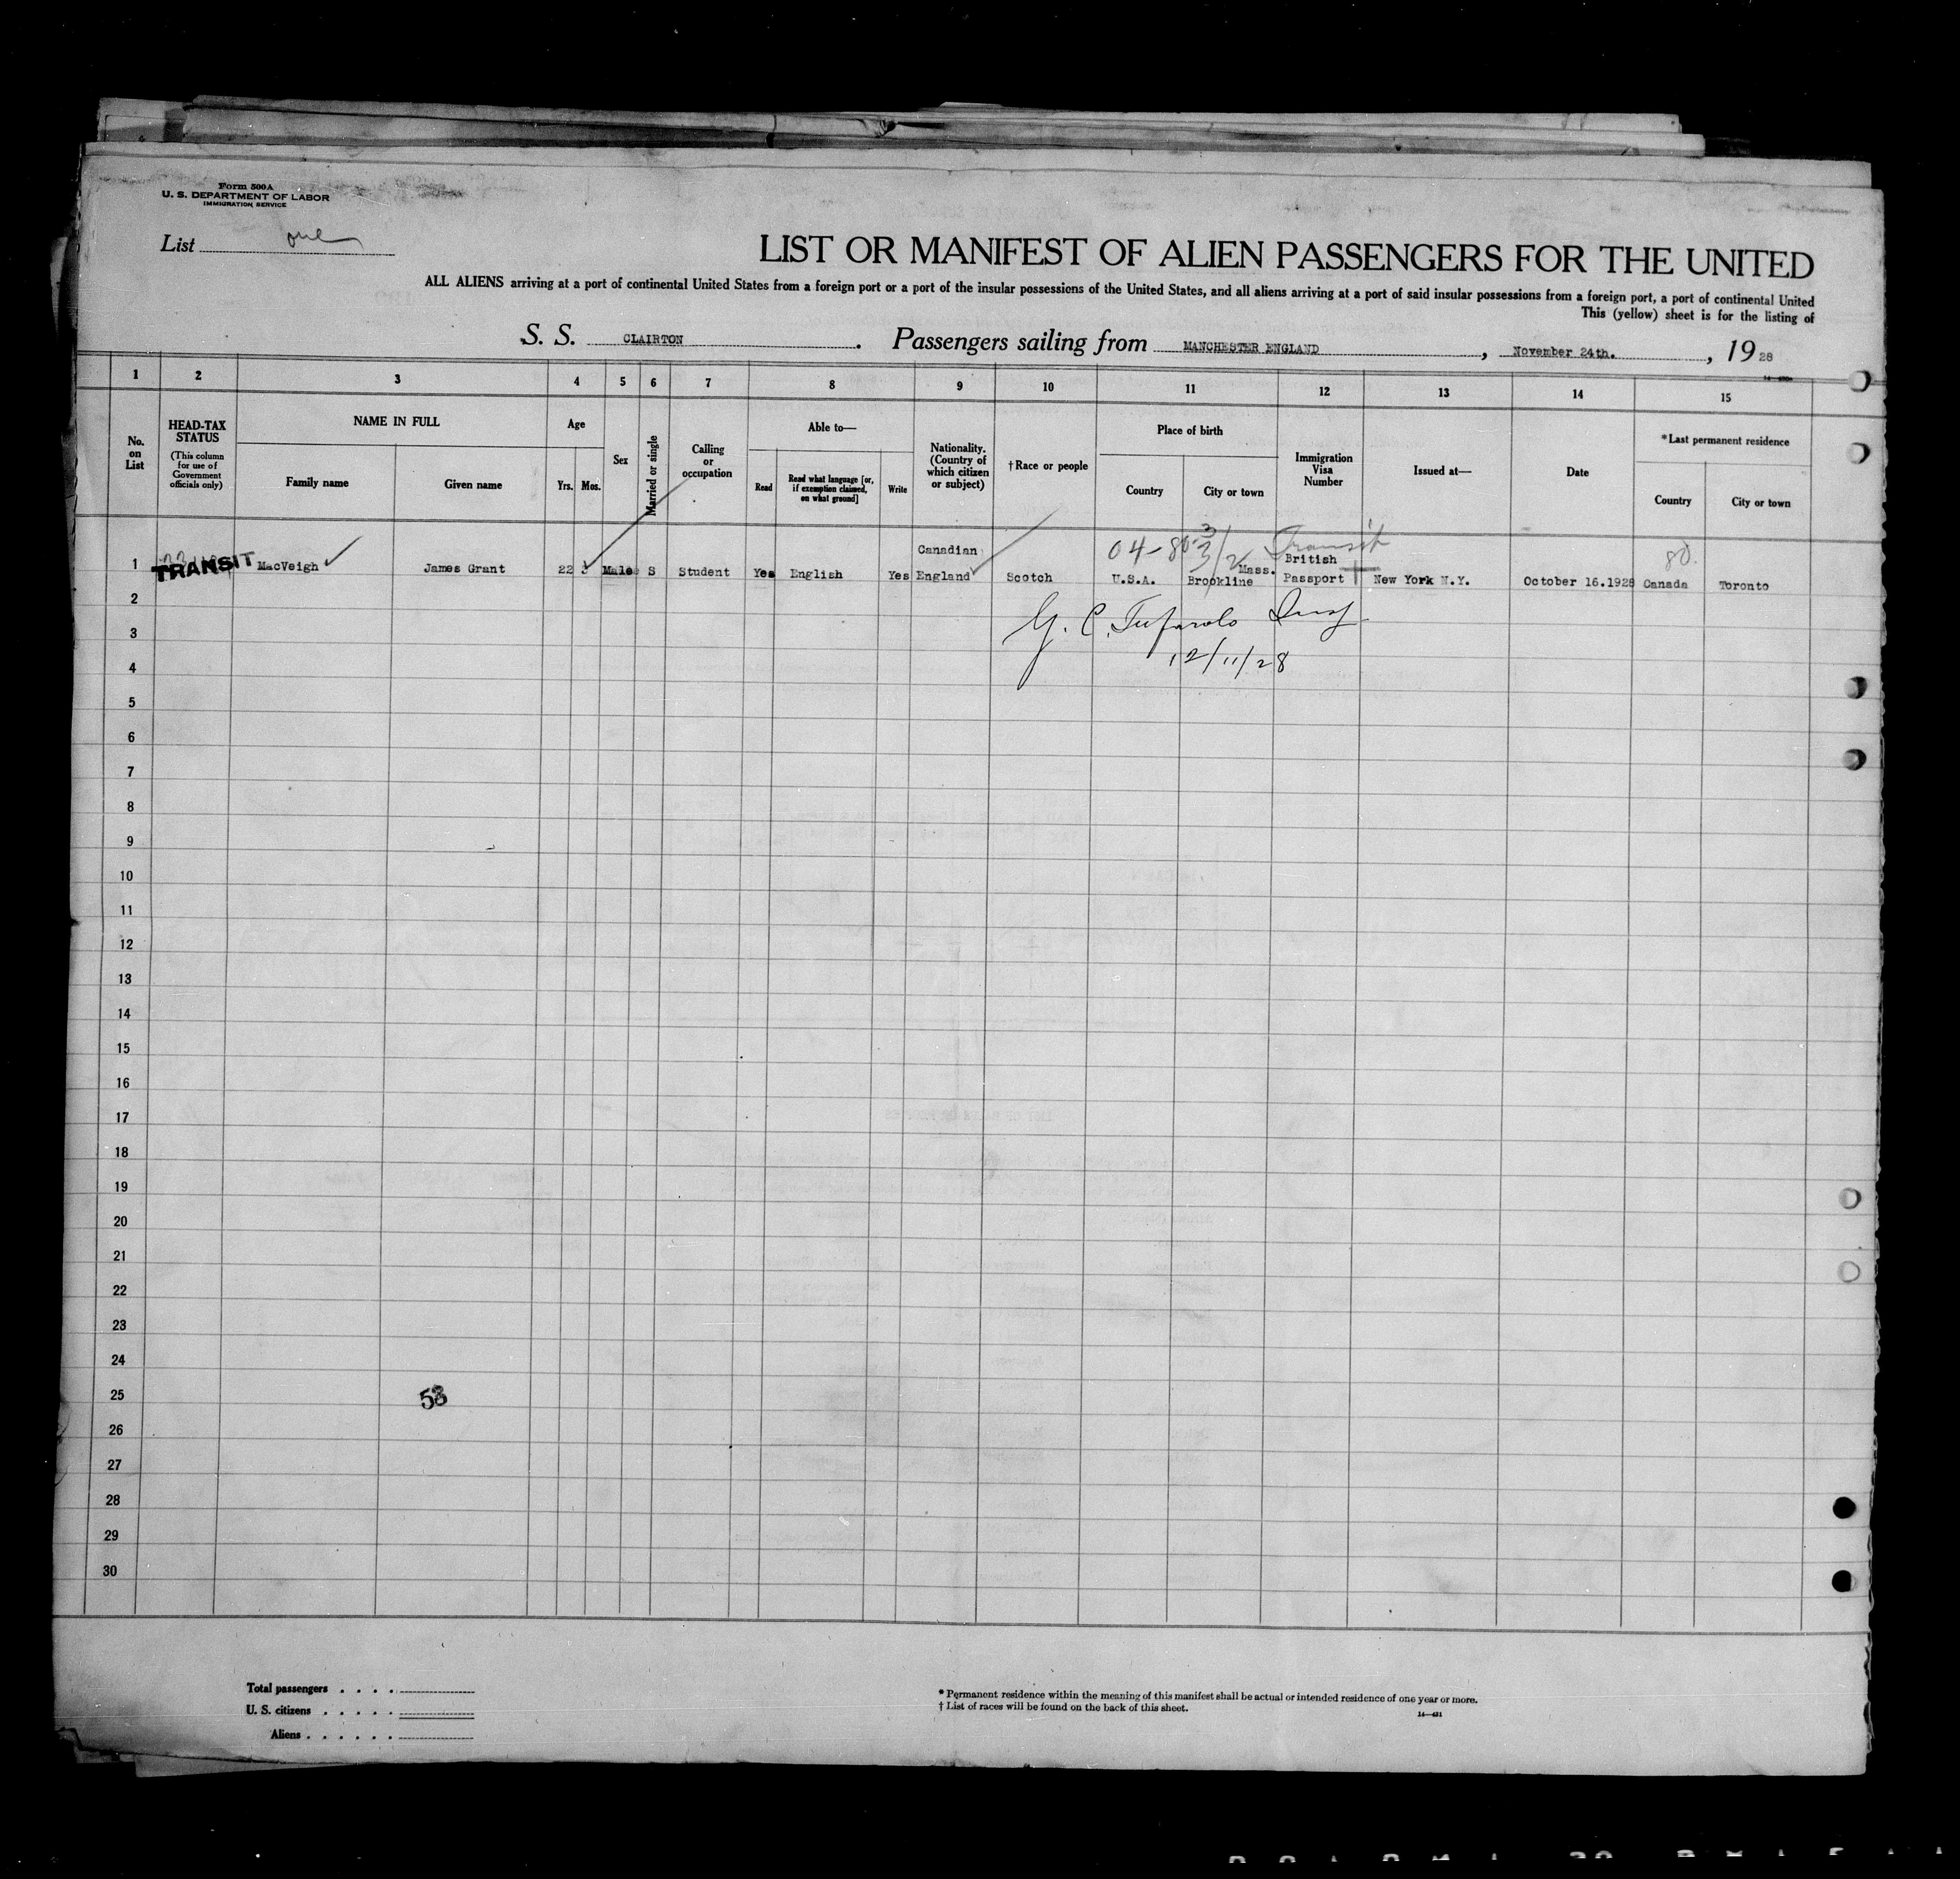 Form 500A
U. S. DEPARTMENT OF LABOR
IMMIGRATION SERVICE
List one
LIST OR MANIFEST OF ALIEN PASSENGERS FOR THE UNITED
ALL ALIENS arriving at a port of continental United States from a foreign port or a port of the insular possessions of the United States, and all aliens arriving at a port of said insular possessions from a foreign port, a port of continental United
This (yellow) sheet is for the listing of
S. S. CLAIRTON. Passengers sailing from MANCHESTER ENGLAND, November 24th., 1928
1 2 3 4 5 6 7 8 9 10 11 12 13 14 15
No. on List
HEAD-TAX STATUS
(This column for use of Government officials only)
NAME IN FULL
Family name
Given name
Age
Yrs.
Mos.
Sex
Married or single
Calling or occupation
Able to—
Read
Read what language [or, if exemption claimed, on what ground]
Write
Nationality. (Country of which citizen or subject)
†Race or people
Place of birth
Country
City or town
Immigration Visa Number
Issued at—
Date
*Last permanent residence
Country
City or town
04-80 3/2 Transit 80.
1 TRANSIT MacVeigh James Grant 22 3 Male S Student Yes English Yes Canadian England Scotch U.S.A. Brookline Mass. British Passport New York N.Y. October 16.1928 Canada Toronto
2
3
12/11/28
4
5
6
7
8
9
10
11
12
13
14
15
16
17
18
19
20
21
22
23
24
25
53
26
27
28
29
30
Total passengers . . . .
U. S. citizens . . . . .
Aliens . . . . . .
* Permanent residence within the meaning of this manifest shall be actual or intended residence of one year or more.
† List of races will be found on the back of this sheet.
14—431